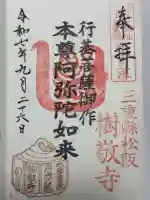 奉拝
三重縣松阪
樹敬寺
行基菩薩御作
本尊阿弥陀如来
令和七年九月二十六日